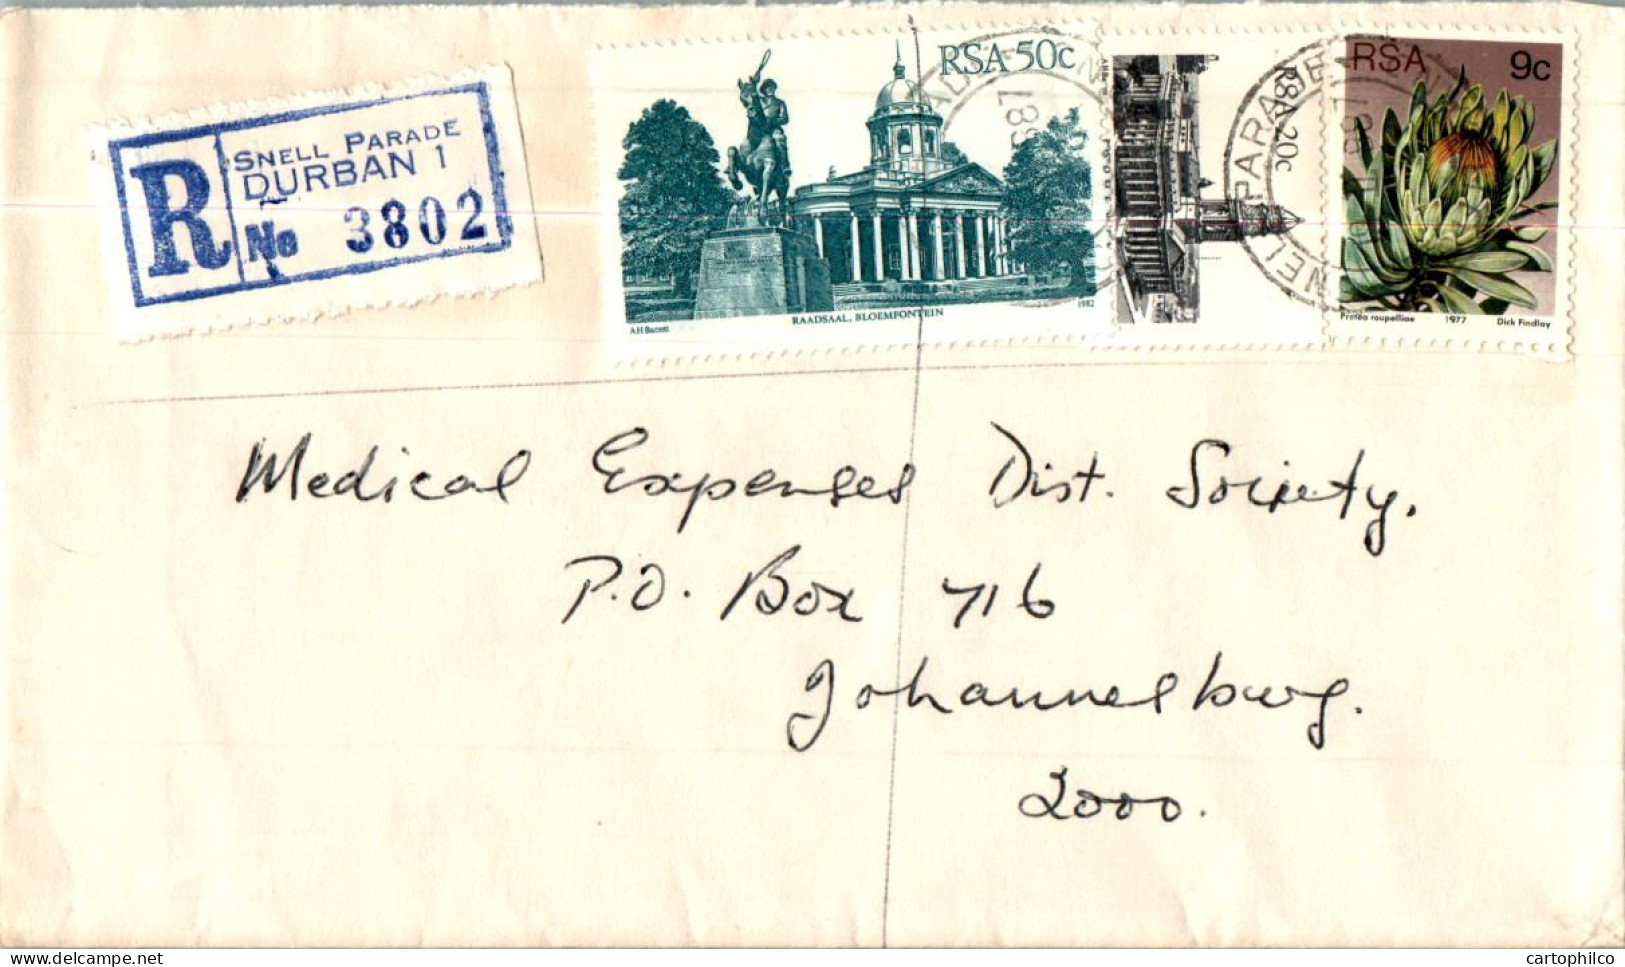 SNELL PARADE
DURBAN 1
R No 3802
RSA 50c
RAADSAAL, BLOEMFONTEIN
AH Barrett
1982
RSA 20c
RSA 9c
Protea roupelliae 1977 Dick Findlay
SNELL PARADE
Medical Expenses Dist. Society.
P.O. Box 716
Johannesburg.
2000.
cartophilco